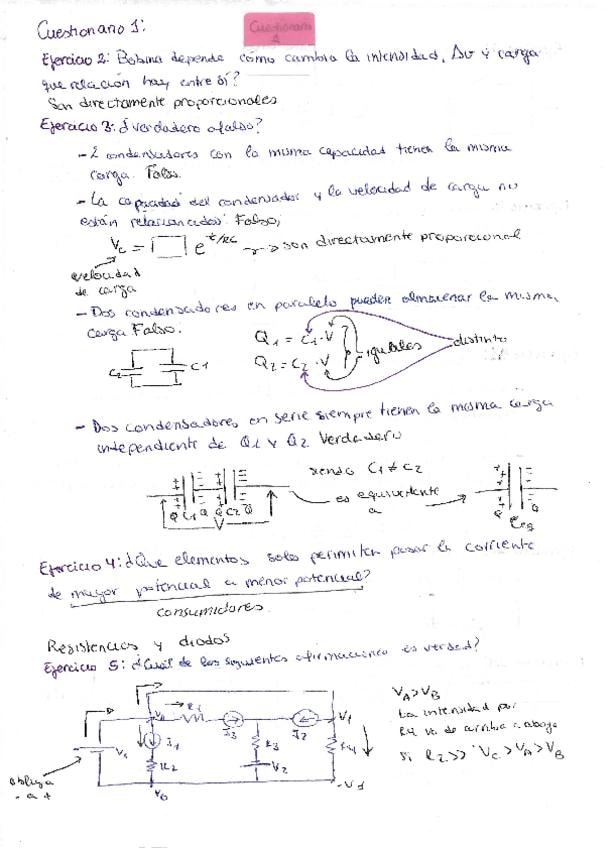 Cuestionario 1:
Cuestionario
1
Ejercicio 2: Bobina depende cómo cambia la intensidad, Δv y carga
que relación hay entre sí?
Son directamente proporcionales
Ejercicio 3: ¿Verdadero o falso?
- 2 condensadores con la misma capacidad tienen la misma
carga. Falso.
- La capacidad del condensador y la velocidad de carga no
están relacionados. Falso,
Vc = e^t/RC → son directamente proporcional
velocidad
de carga
- Dos condensadores en paralelo pueden almacenar la misma
carga Falso.
Q1 = C1 · V
Q2 = C2 · V
iguales
distinto
C2 C1
- Dos condensadores en serie siempre tienen la misma carga
independiente de Q1 y Q2 Verdadero
siendo C1 ≠ C2
es equivalente
a
Q C1 Q Q C2 Q
V
Q
Ceq
Ejercicio 4: ¿Que elementos solo permiten pasar la corriente
de mayor potencial a menor potencial?
consumidores
Resistencias y diodos
Ejercicio 5: ¿Cuál de las siguientes afirmaciones es verdad?
VA > VB
La intensidad por
R4 va de arriba a abajo
si R2 >> Vc > VA > VB
R1
I3
I2
I1
R2
R3
V2
R4
obliga
- a +